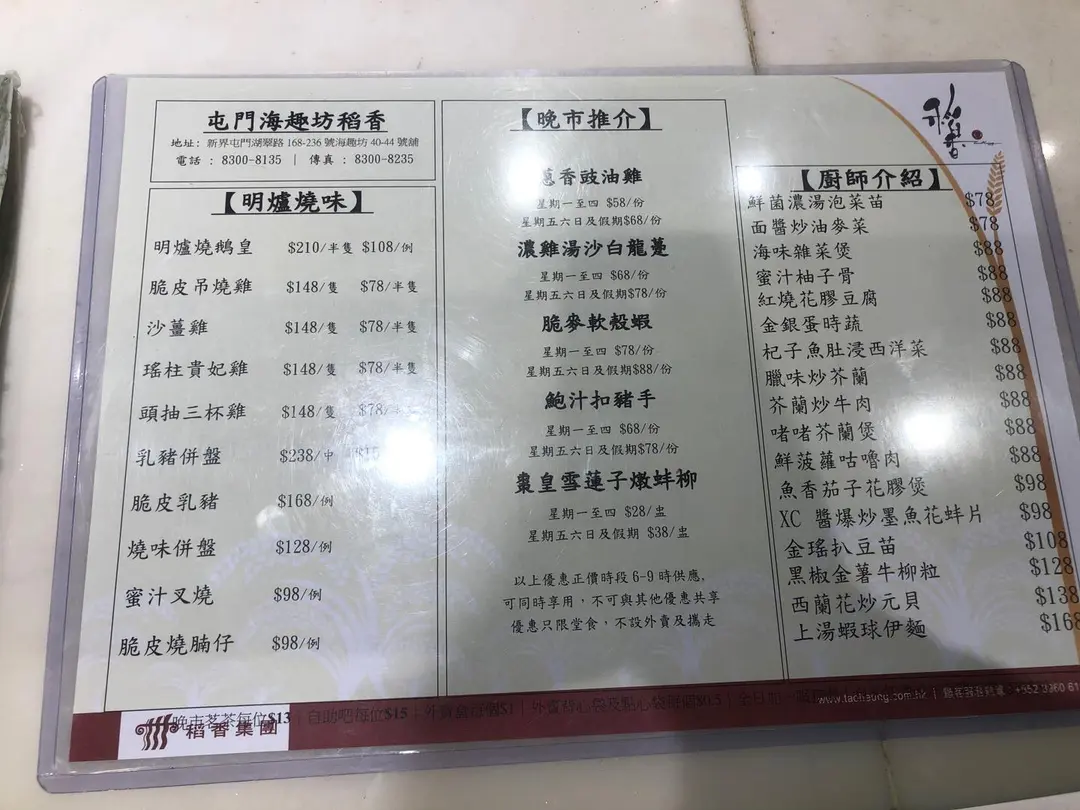 屯門海趣坊稻香
地址: 新界屯門湖翠路 168-236 號海趣坊 40-44 號舖
電話 : 8300-8135 | 傳真 : 8300-8235
【明爐燒味】
明爐燒鵝皇 $210/半隻 $108/例
脆皮吊燒雞 $148/隻 $78/半隻
沙薑雞 $148/隻 $78/半隻
瑤柱貴妃雞 $148/隻 $78/半隻
頭抽三杯雞 $148/隻 $78/半隻
乳豬併盤 $238/中
脆皮乳豬 $168/例
燒味併盤 $128/例
蜜汁叉燒 $98/例
脆皮燒腩仔 $98/例
【晚市推介】
蔥香豉油雞
星期一至四 $58/份
星期五六日及假期$68/份
濃雞湯沙白龍躉
星期一至四 $68/份
星期五六日及假期$78/份
脆麥軟殼蝦
星期一至四 $78/份
星期五六日及假期$88/份
鮑汁扣豬手
星期一至四 $68/份
星期五六日及假期$78/份
棗皇雪蓮子燉蚌柳
星期一至四 $28/盅
星期五六日及假期 $38/盅
以上優惠正價時段 6-9 時供應,
可同時享用，不可與其他優惠共享
優惠只限堂食，不設外賣及攜走
稻香
【廚師介紹】
鮮菌濃湯泡菜苗 $78
面醬炒油麥菜 $78
海味雜菜煲 $88
蜜汁柚子骨 $88
紅燒花膠豆腐 $88
金銀蛋時蔬 $88
杞子魚肚浸西洋菜 $88
臘味炒芥蘭 $88
芥蘭炒牛肉 $88
啫啫芥蘭煲 $88
鮮菠蘿咕嚕肉 $88
魚香茄子花膠煲 $98
XC 醬爆炒墨魚花蚌片 $98
金瑤扒豆苗 $108
黑椒金薯牛柳粒 $128
西蘭花炒元貝 $138
上湯蝦球伊麵 $168
晚市茗茶每位$13 | 自助吧每位$15 | 外賣盒每個$1 | 外賣背心袋及點心袋每個$0.5
www.taoheung.com.hk
稻香集團